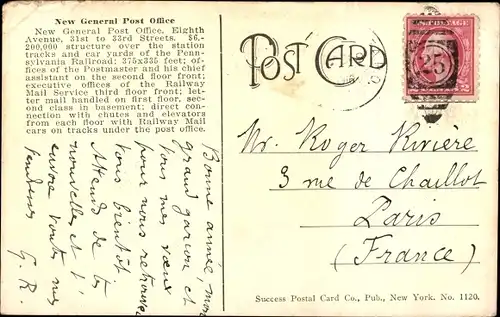 New General Post Office
New General Post Office, Eighth
Avenue, 31st to 33rd Streets. $6,-
200,000 structure over the station
tracks and car yards of the Penn-
sylvania Railroad; 375x335 feet; of-
fices of the Postmaster and his chief
assistant on the second floor front;
executive offices of the Railway
Mail Service third floor front; let-
ter mail handled on first floor, sec-
ond class in basement; direct con-
nection with chutes and elevators
from each floor with Railway Mail
cars on tracks under the post office.
POST CARD
25
2
Mr. Roger Rivière
3 rue de Chaillot
Paris
(France)
Bonne année, mon
grand garçon et
tous mes vœux
pour nous retrouver
tous bientôt
Attends de tes
nouvelles et t'
envoie toutes mes
tendresses
G. R.
Success Postal Card Co., Pub., New York. No. 1120.